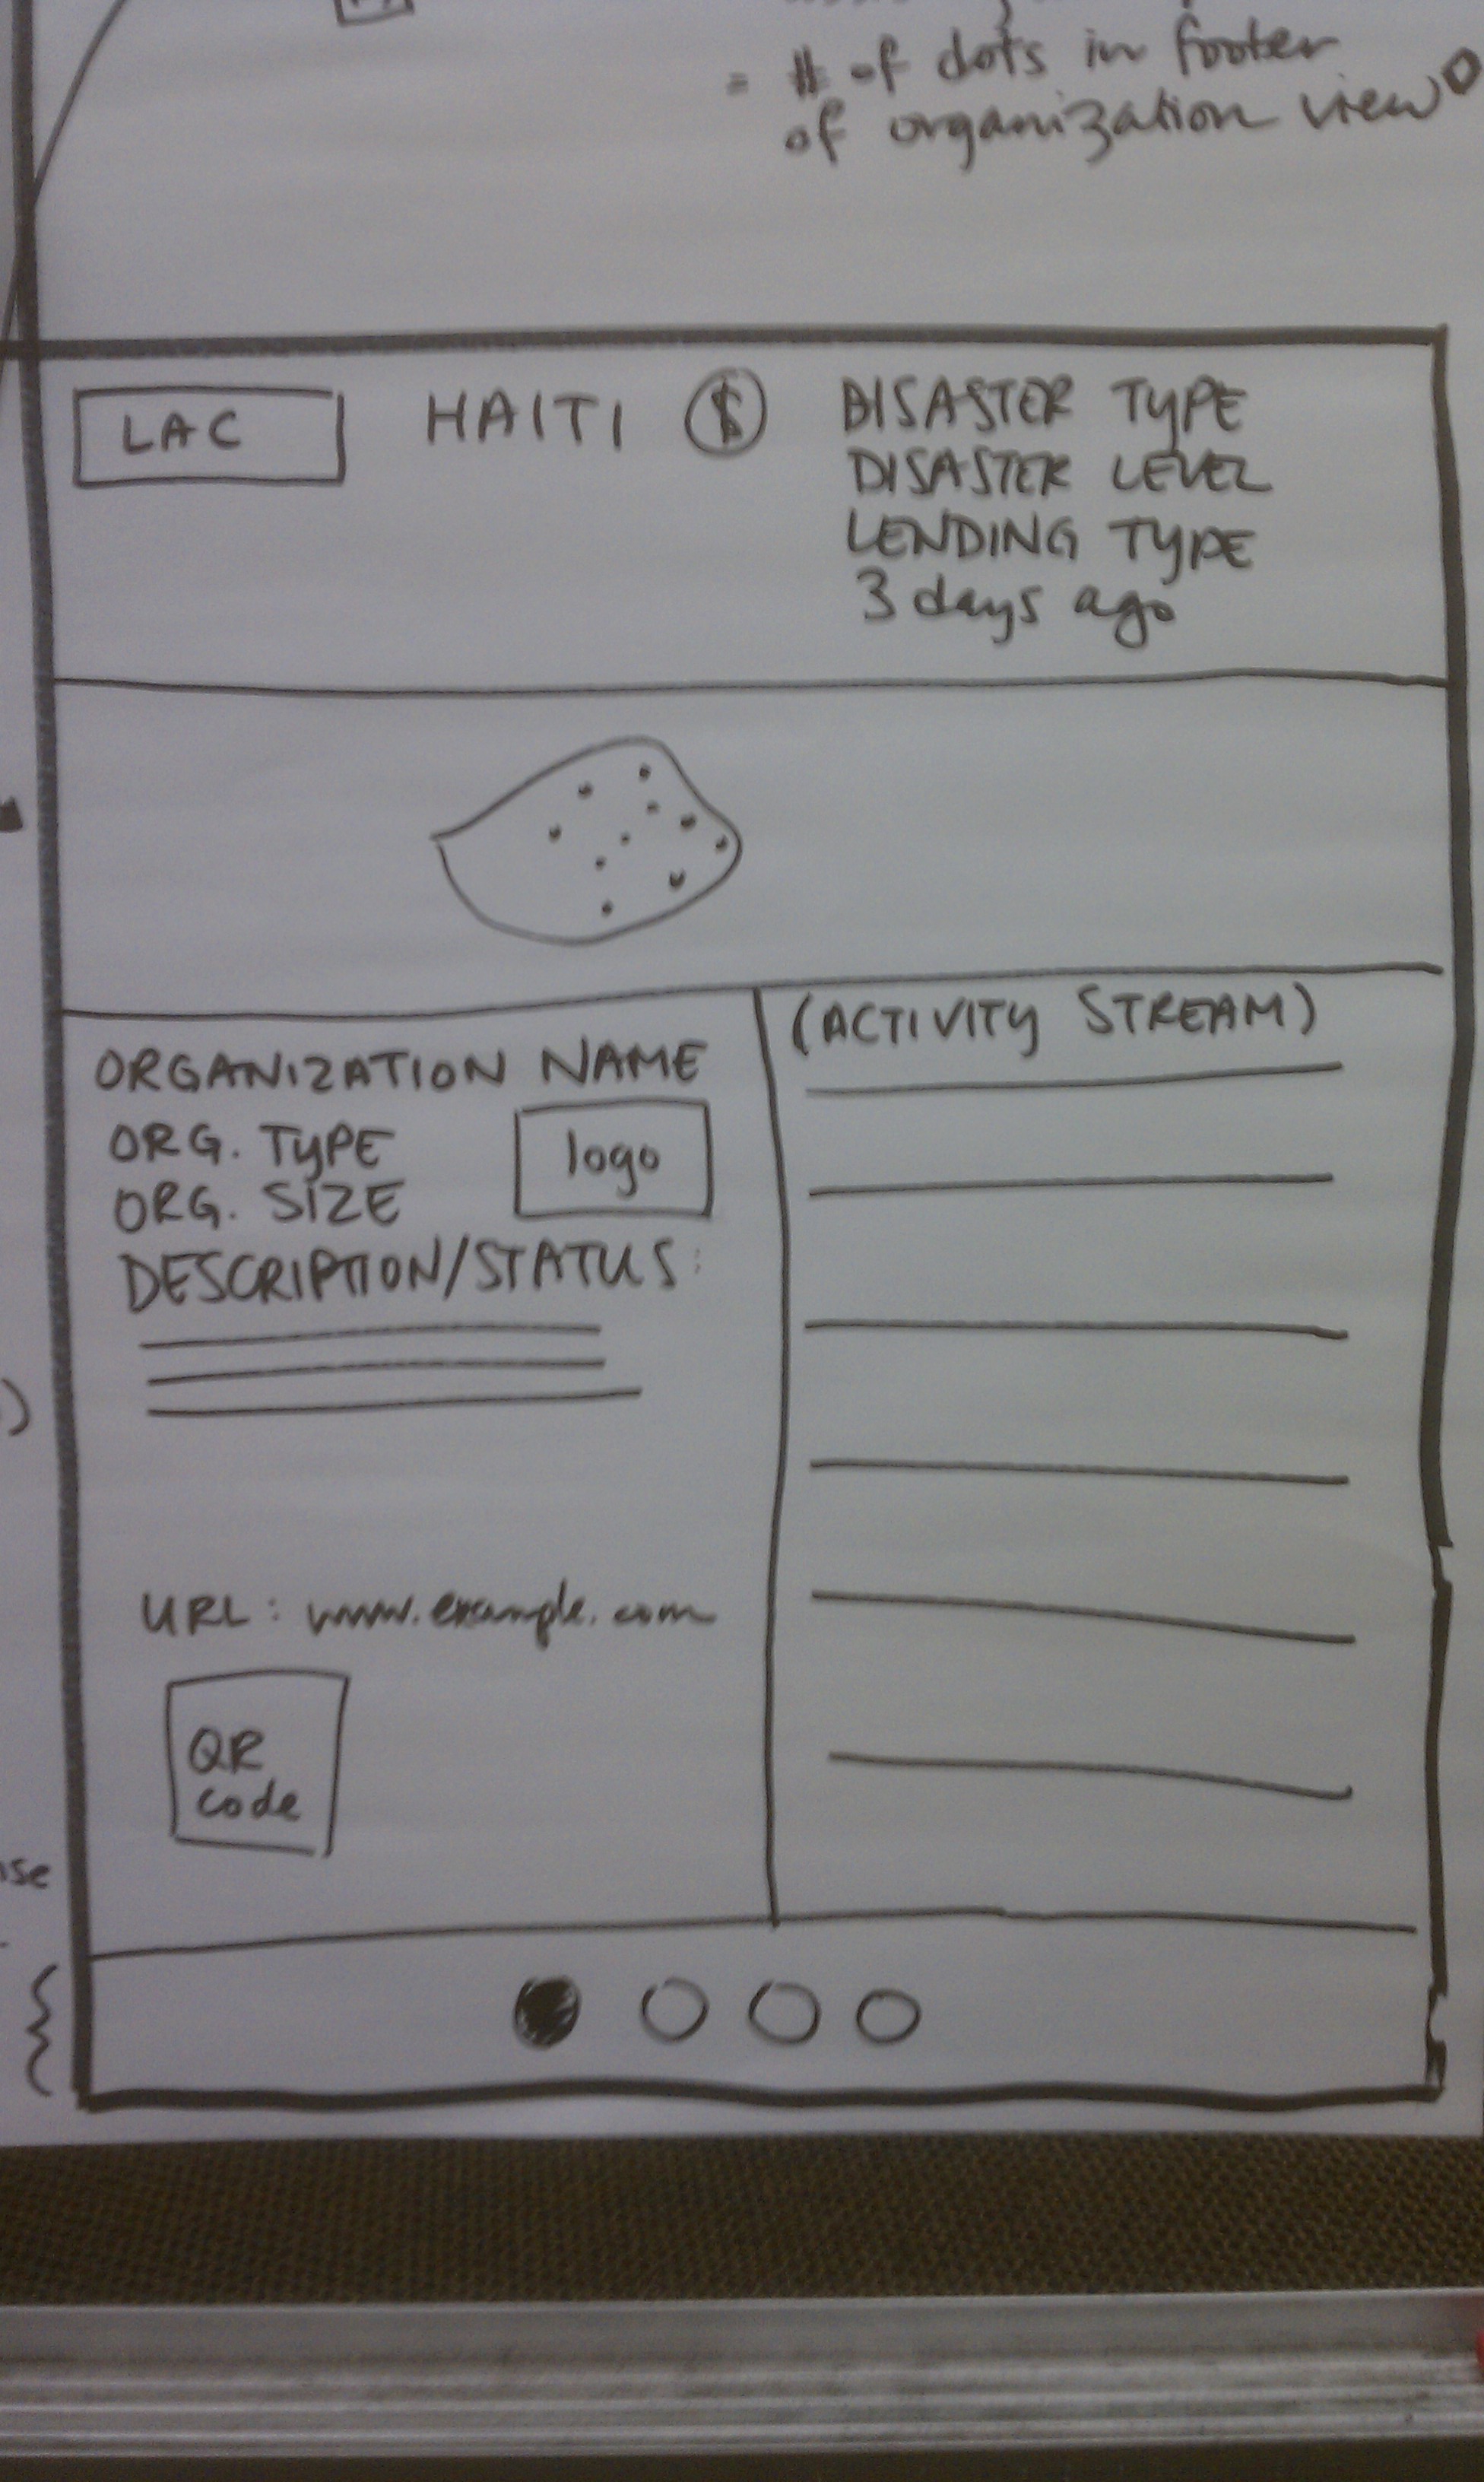 = # of dots in footer
of organization view
LAC
HAITI $
DISASTER TYPE
DISASTER LEVEL
LENDING TYPE
3 days ago
ORGANIZATION NAME
ORG. TYPE
logo
ORG. SIZE
DESCRIPTION/STATUS:
URL: www.example.com
QR
code
(ACTIVITY STREAM)